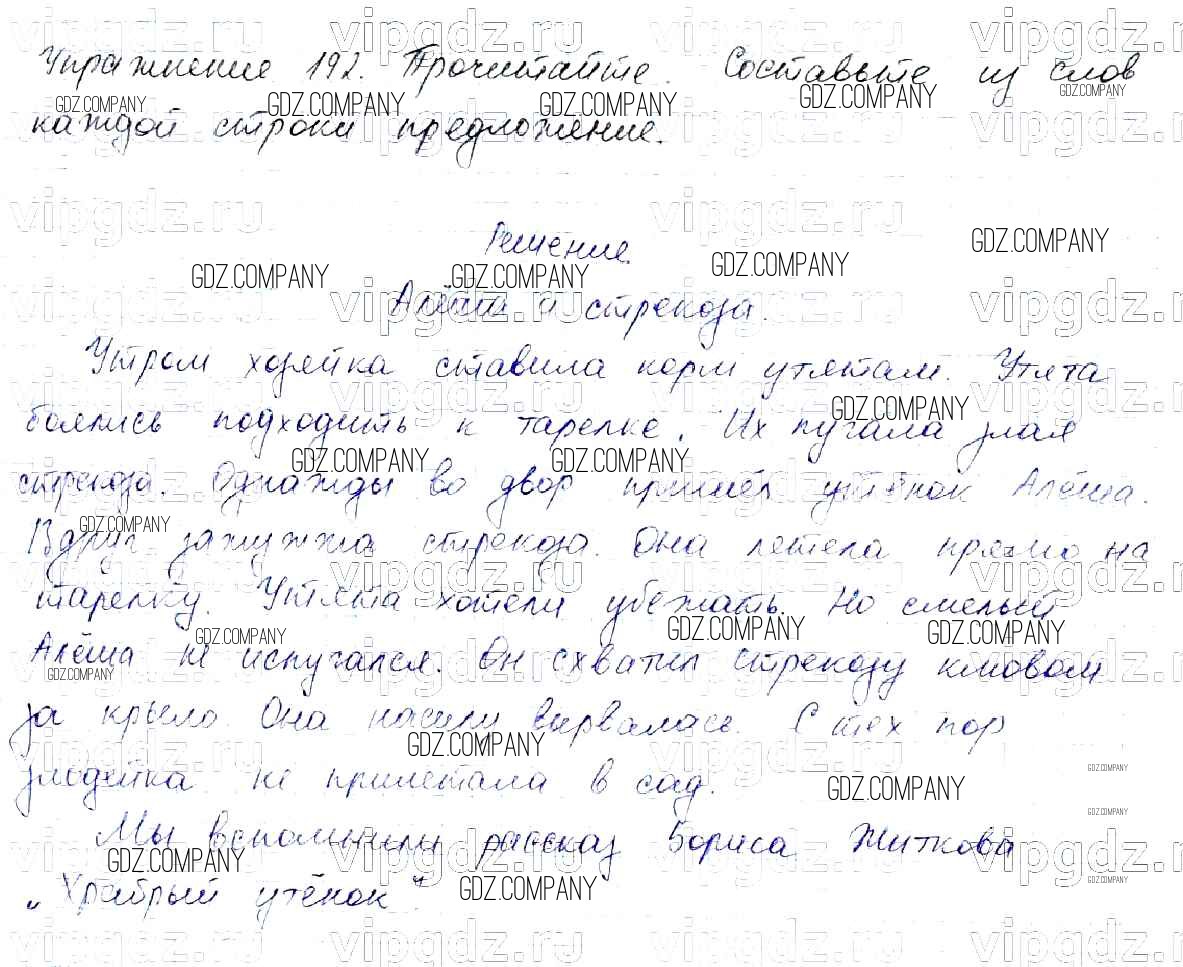 Упражнение 192. Прочитайте. Составьте из слов
каждой строки предложение.
Решение.
Алёша и стрекоза.
Утром хозяйка ставила корм утятам. Утята
боялись подходить к тарелке. Их пугала злая
стрекоза. Однажды во двор пришёл утёнок Алёша.
Вдруг зажужжа стрекоза. Она летела прямо на
тарелку. Утята хотели убежать. Но смелый
Алёша не испугался. Он схватил стрекозу клювом
за крыло. Она насилу вырвалась. С тех пор
злодейка не прилетала в сад.
Мы вспомнили рассказ Бориса Житкова
„Храбрый утёнок".
vipgdz.ru
GDZ.COMPANY